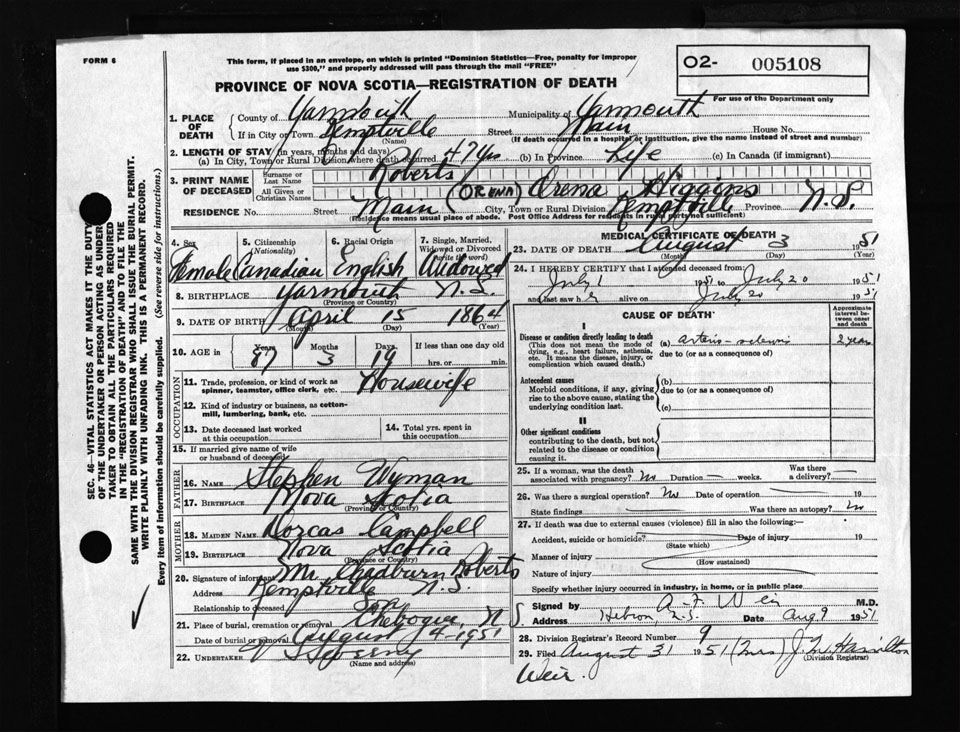 FORM 6
This form, if placed in an envelope, on which is printed "Dominion Statistics—Free, penalty for improper
use $300," and properly addressed will pass through the mail "FREE"
O2- 005108
For use of the Department only
PROVINCE OF NOVA SCOTIA—REGISTRATION OF DEATH
SEC. 46—VITAL STATISTICS ACT MAKES IT THE DUTY
OF THE UNDERTAKER OR PERSON ACTING AS UNDER-
TAKER TO OBTAIN ALL THE PARTICULARS REQUIRED
IN THE "REGISTRATION OF DEATH" AND TO FILE THE
SAME WITH THE DIVISION REGISTRAR WHO SHALL ISSUE THE BURIAL PERMIT.
WRITE PLAINLY WITH UNFADING INK. THIS IS A PERMANENT RECORD.
Every item of information should be carefully supplied. (See reverse side for instructions.)
1. PLACE OF DEATH
County of Yarmouth Municipality of Yarmouth
If in City or Town Kemptville (Name) Street Main House No.
(If death occurred in a hospital or institution, give name instead of street and number)
2. LENGTH OF STAY (in years, months and days)
(a) In City, Town or Rural Division where death occurred 47 yrs (b) In Province Life (c) In Canada (if immigrant)
3. PRINT NAME OF DECEASED
Surname or Last Name Roberts
All Given or Christian Names (ORENA) Orena Higgins
RESIDENCE No. Street Main City, Town or Rural Division Kemptville Province N.S.
(Residence means usual place of abode. Post Office Address for residents in rural parts not sufficient)
4. Sex Female
5. Citizenship (Nationality) Canadian
6. Racial Origin English
7. Single, Married, Widowed or Divorced (write the word) Widowed
8. BIRTHPLACE Yarmouth N.S.
(Province or Country)
9. DATE OF BIRTH April 15 1864
(Month) (Day) (Year)
10. AGE in Years 87 Months 3 Days 19 If less than one day old
hrs. or min.
OCCUPATION
11. Trade, profession, or kind of work as
spinner, teamster, office clerk, etc. Housewife
12. Kind of industry or business, as cotton-
mill, lumbering, bank, etc.
13. Date deceased last worked
at this occupation
14. Total yrs. spent in
this occupation
15. If married give name of wife
or husband of deceased
FATHER
16. NAME Stephen Wyman
17. BIRTHPLACE Nova Scotia
(Province or Country)
MOTHER
18. MAIDEN NAME Dorcas Campbell
19. BIRTHPLACE Nova Scotia
(Province or Country)
20. Signature of informant Mr Chadburn Roberts
Address Kemptville N.S.
Relationship to deceased Son
21. Place of burial, cremation or removal Chebogue, N S.
Date of burial or removal August 4-1951
22. UNDERTAKER
(Name and address)
MEDICAL CERTIFICATE OF DEATH
23. DATE OF DEATH August 3 1951
(Month) (Day) (Year)
24. I HEREBY CERTIFY that I attended deceased from
July 1 1951 to July 20 1951
and last saw h er alive on July 20 1951
CAUSE OF DEATH
Approximate interval between onset and death
I
Disease or condition directly leading to death
(This does not mean the mode of
dying, e.g., heart failure, asthenia,
etc. It means the disease, injury, or
complication which caused death.)
(a) arterio-sclerosis 2 years
due to (or as a consequence of)
Antecedent causes
Morbid conditions, if any, giving
rise to the above cause, stating the
underlying condition last.
(b)
due to (or as a consequence of)
(c)
II
Other significant conditions
contributing to the death, but not
related to the disease or condition
causing it.
25. If a woman, was the death
associated with pregnancy? No Duration weeks. Was there
a delivery?
26. Was there a surgical operation? No Date of operation 19
State findings Was there an autopsy? No
27. If death was due to external causes (violence) fill in also the following:—
Accident, suicide or homicide? Date of injury 19
(State which)
Manner of injury
(How sustained)
Nature of injury
Specify whether injury occurred in industry, in home, or in public place
Signed by A F Weir M.D.
Address Hebron, N.S. Date Aug 9 1951
28. Division Registrar's Record Number 9
29. Filed August 31 1951 (Mrs) J. W. Hamilton
(Division Registrar)
Weir.